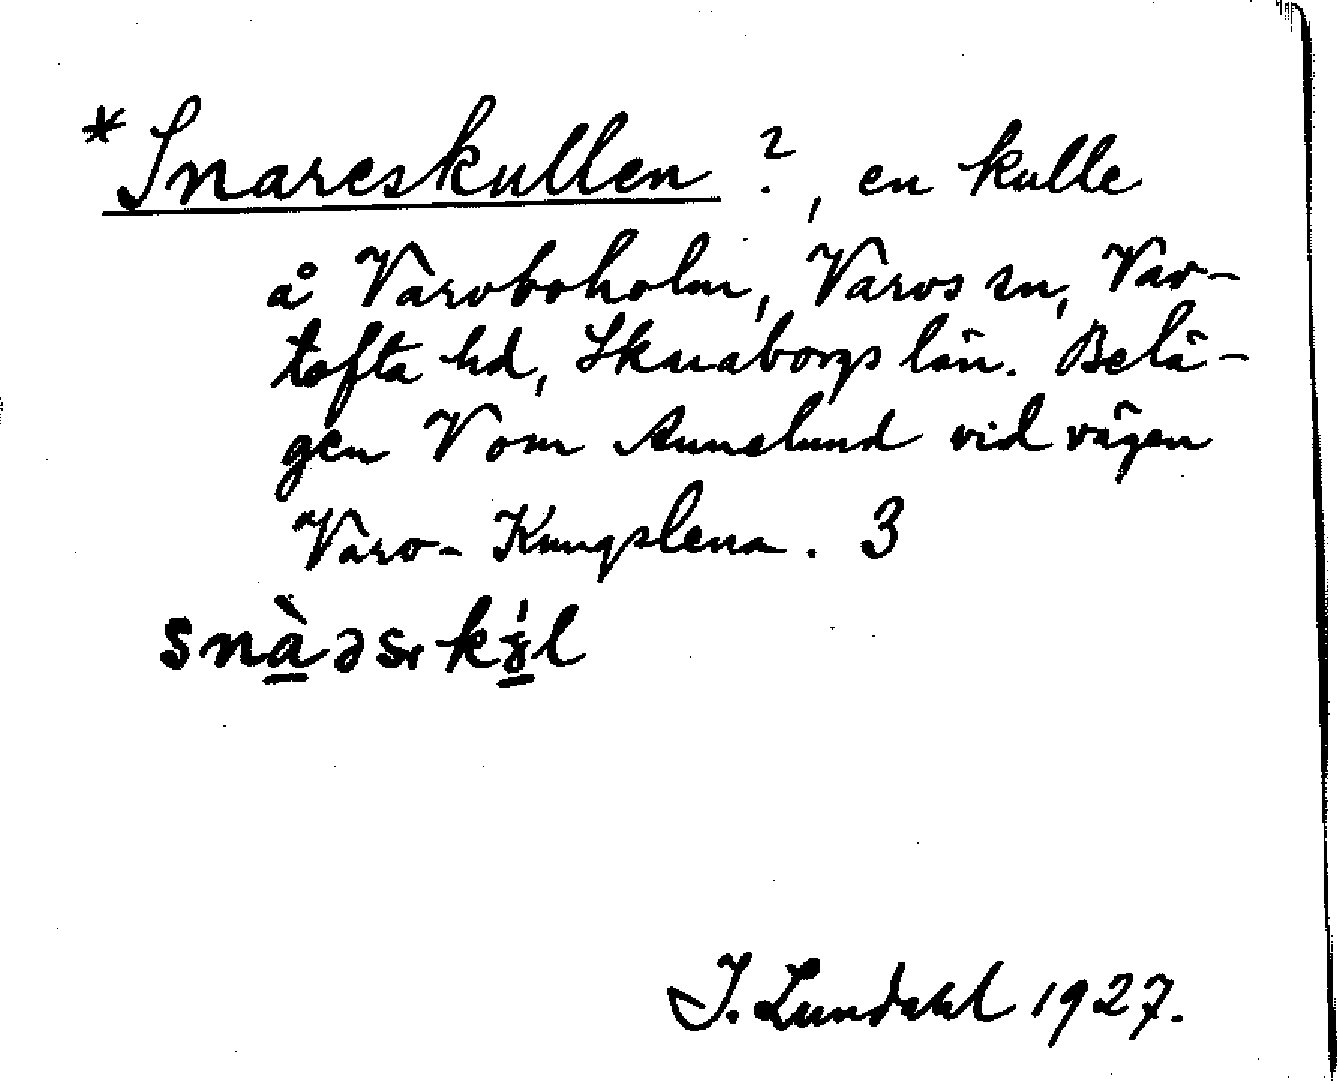 *Snareskullen ?, en kulle
å Varvboholm, Varvs sn, Var-
tofta hd, Skaraborgs län. Belä-
gen V om Annelund vid vägen
Varv- Kungslena. 3
J. Lundahl 1927.